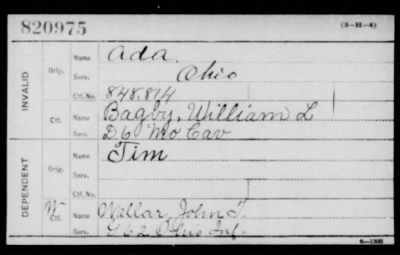 820975 (3-H-4)
INVALID
Orig. Name Ada.
Serv. Ohio
Ctf. No. 848,814
Ctf. Name Bagby, William L
Serv. D. 6 Mo Cav
DEPENDENT
Orig. Name Tim
Serv.
Ctf. No.
W Ctf. Name Willar, John T.
Serv. 62 Ohio Inf-